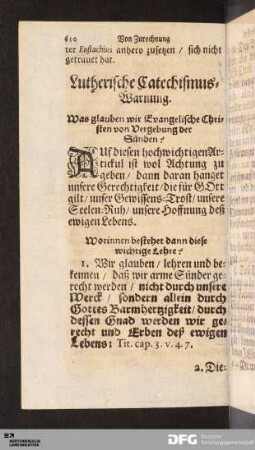 610 Von Zurechnung
ter Eustachius anhero zusetzen / sich nicht
getrauet hat.
Lutherische Catechismus-
Warnung.
Was glauben wir Evangelische Chri-
sten von Vergebung der
Sünden?
AUf diesen hochwichtigen Ar-
tickul ist wol Achtung zu
geben / dann daran hanget
unsere Gerechtigkeit / die für GOtt
gilt / unser Gewissens-Trost / unsere
Seelen-Ruh / unsere Hoffnung deß
ewigen Lebens.
Worinnen bestehet dann diese
wichtige Lehre?
1. Wir glauben / lehren und be-
kennen / daß wir arme Sünder ge-
recht werden / nicht durch unsere
Werck / sondern allein durch
Gottes Barmhertzigkeit / durch
dessen Gnad werden wir ge-
recht und Erben deß ewigen
Lebens: Tit. cap. 3. v. 4. 7.
2. Die-
DFG Deutsche
Forschungsgemeinschaft